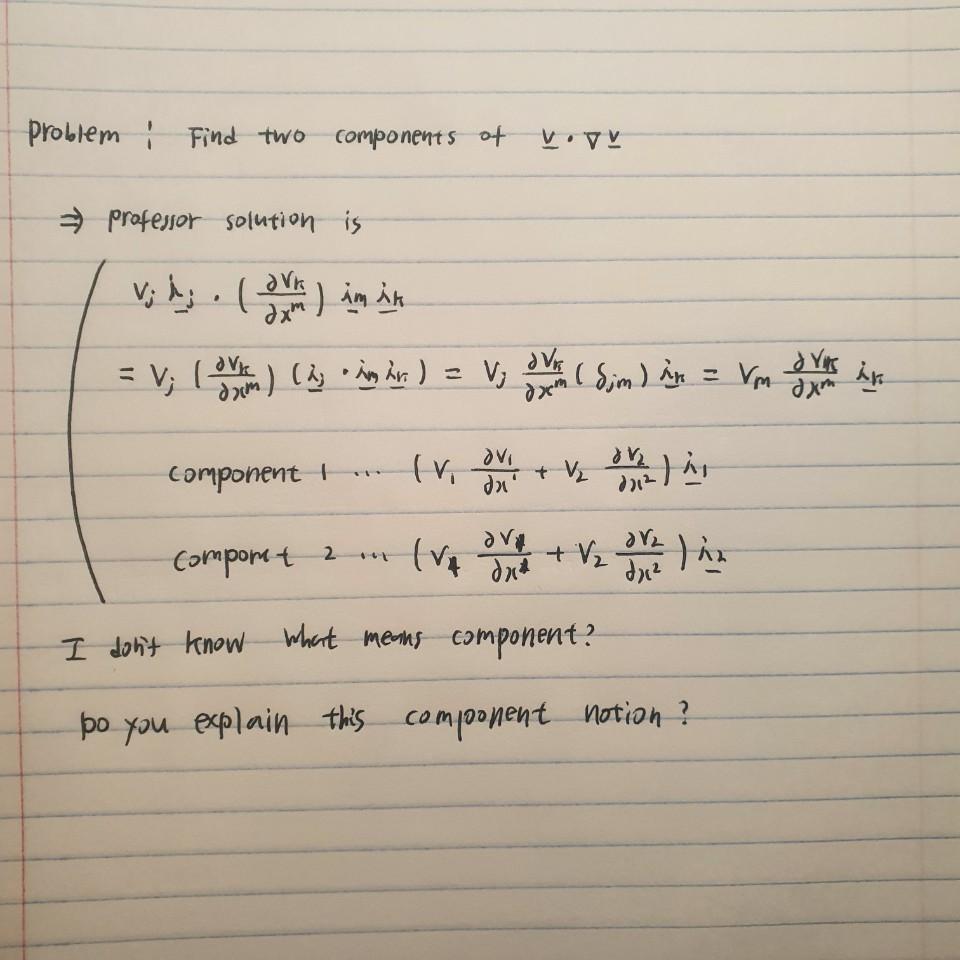 problem : Find two components of v · ∇ v
⇒ professor solution is
Vj ij · ( ∂Vk / ∂x^m ) im ik
= Vj ( ∂Vk / ∂x^m ) ( ij · im ik ) = Vj ∂Vk / ∂x^m ( δjm ) ik = Vm ∂Vk / ∂x^m ik
component 1 ... ( V1 ∂V1 / ∂x^1 + V2 ∂V2 / ∂x^2 ) i1
compomt 2 ... ( V1 ∂V1 / ∂x^1 + V2 ∂V2 / ∂x^2 ) i2
I don't know what means component?
Do you explain this component notion ?